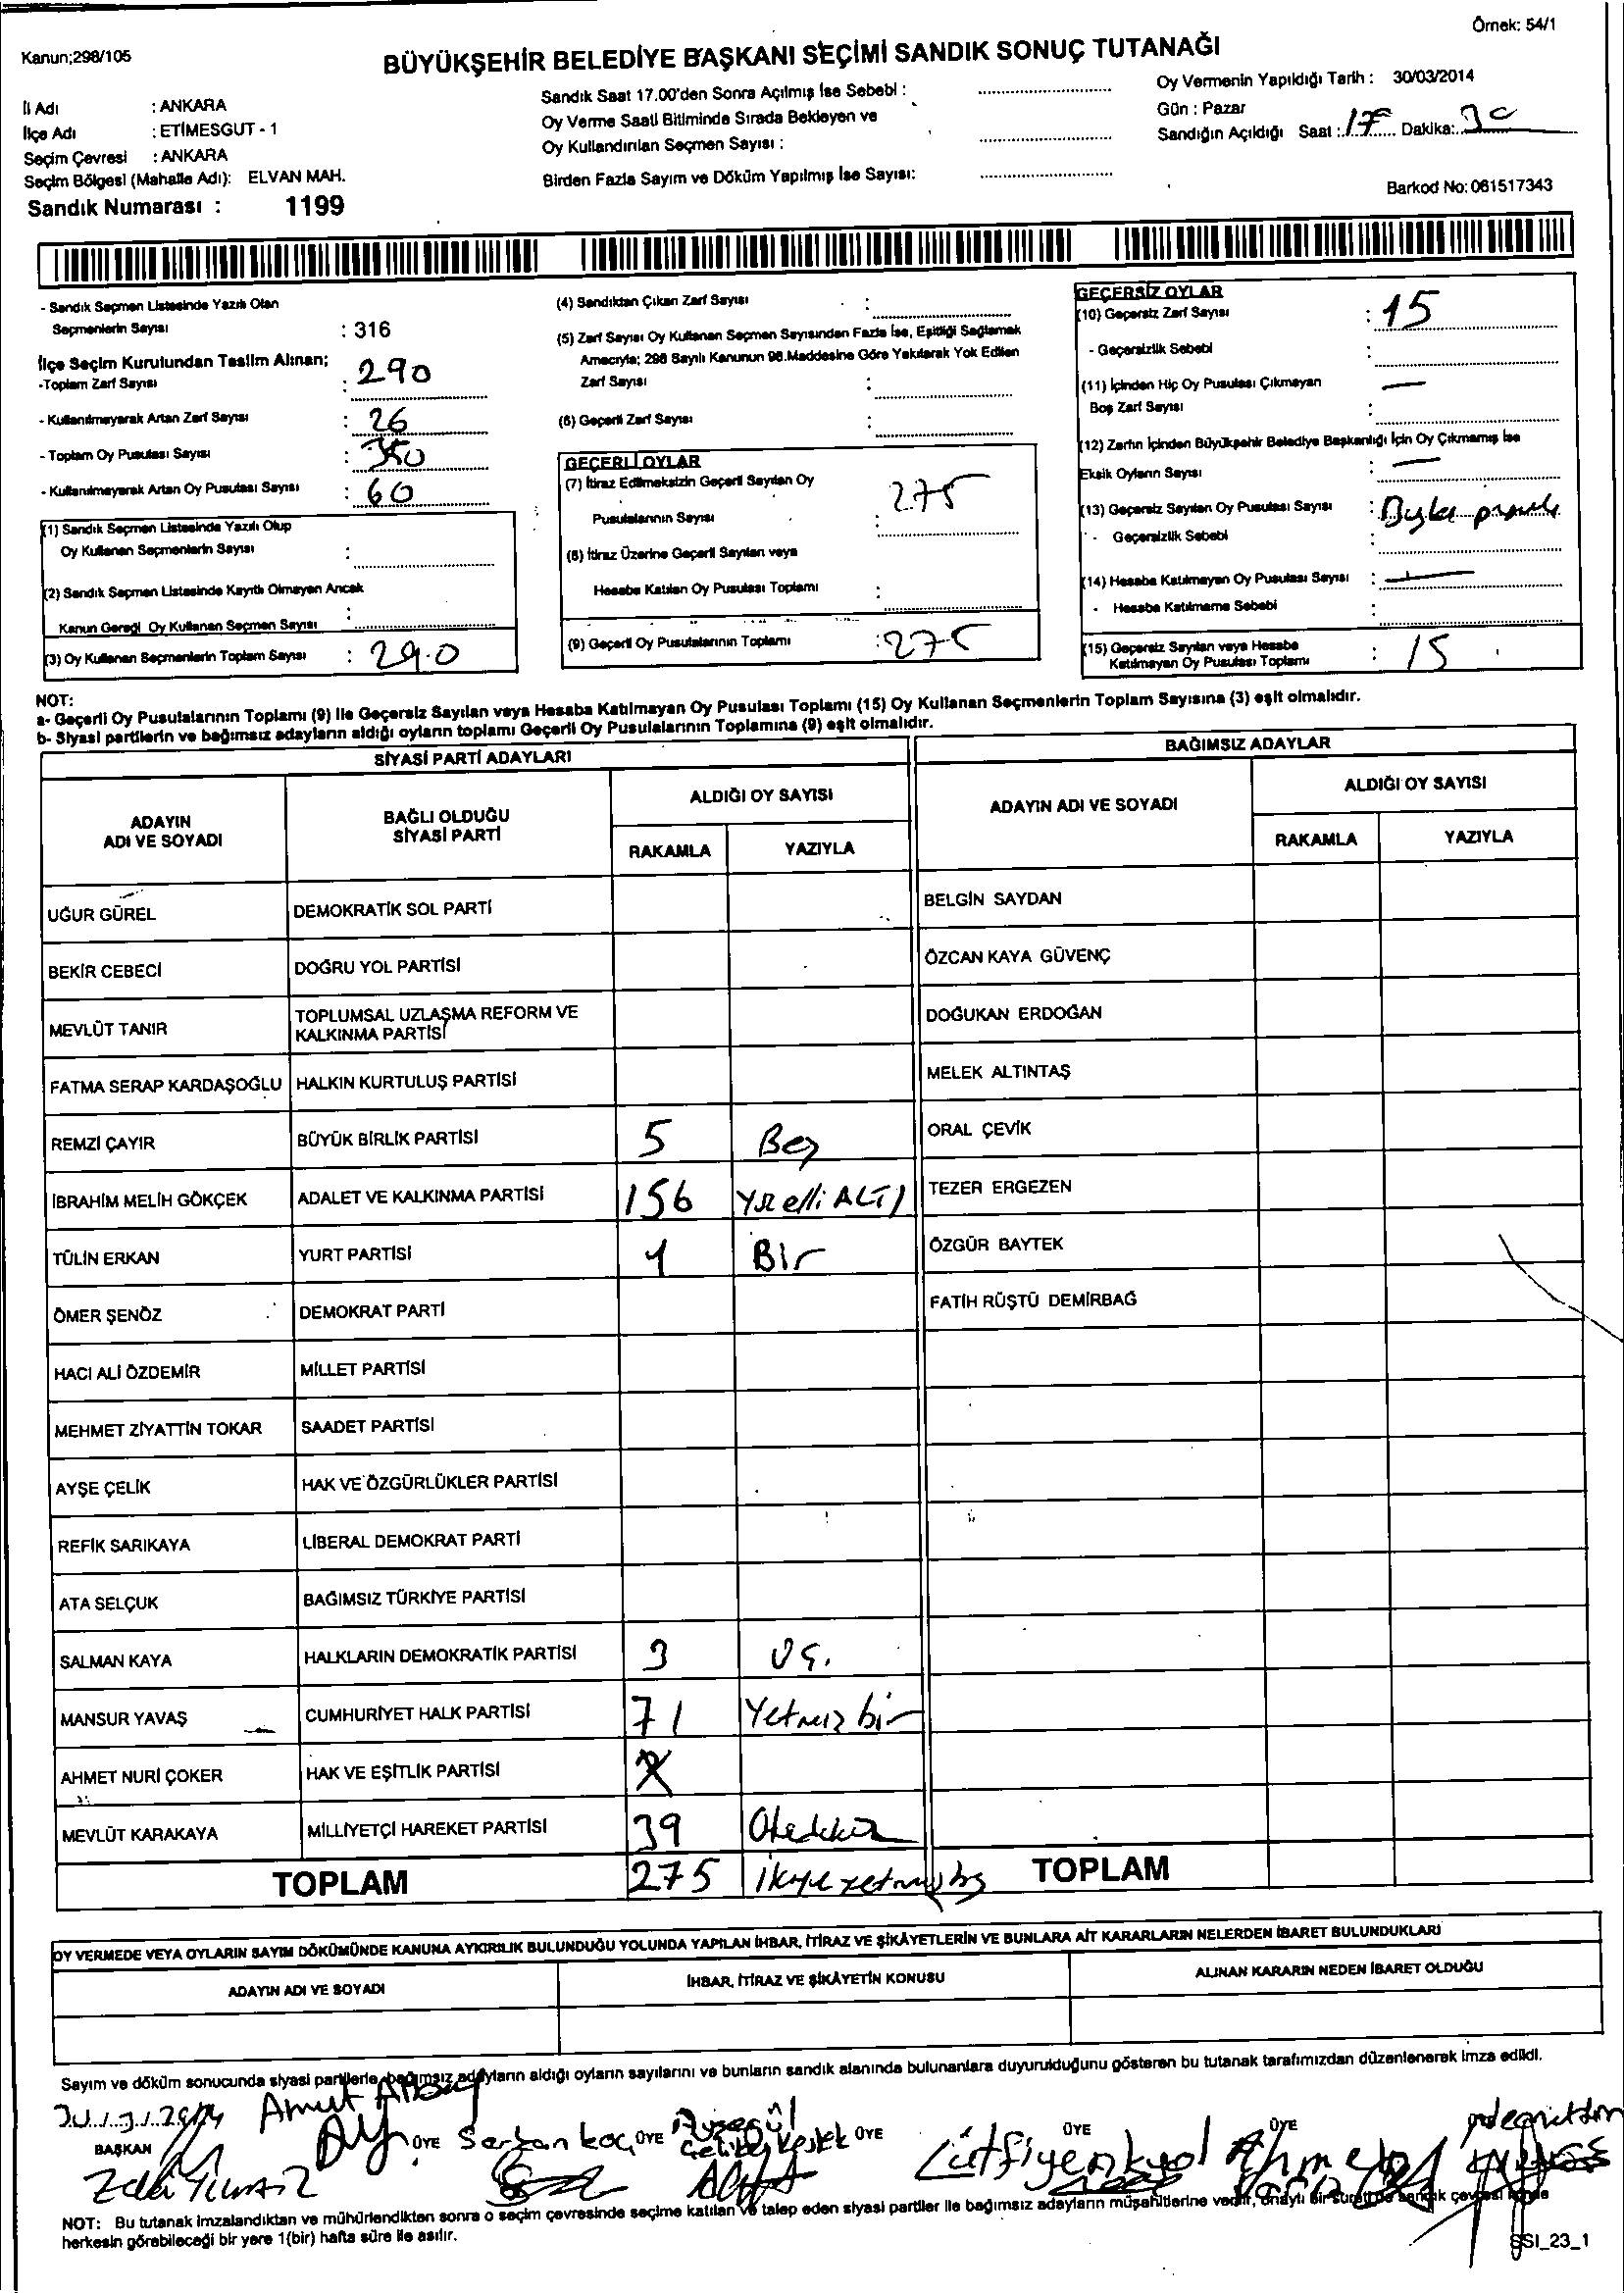 Örnek: 54/1
Kanun;298/105
BÜYÜKŞEHİR BELEDİYE BAŞKANI SEÇİMİ SANDIK SONUÇ TUTANAĞI
İl Adı : ANKARA
İlçe Adı : ETİMESGUT - 1
Seçim Çevresi : ANKARA
Seçim Bölgesi (Mahalle Adı): ELVAN MAH.
Sandık Numarası : 1199
Sandık Saat 17.00'den Sonra Açılmış İse Sebebi :
Oy Verme Saati Bitiminde Sırada Bekleyen ve
Oy Kullandırılan Seçmen Sayısı :
Birden Fazla Sayım ve Döküm Yapılmış İse Sayısı:
Oy Vermenin Yapıldığı Tarih : 30/03/2014
Gün : Pazar
Sandığın Açıldığı Saat : 17 Dakika: 30
Barkod No: 061517343
- Sandık Seçmen Listesinde Yazılı Olan
Seçmenlerin Sayısı : 316
İlçe Seçim Kurulundan Teslim Alınan;
-Toplam Zarf Sayısı : 290
- Kullanılmayarak Artan Zarf Sayısı : 26
- Toplam Oy Pusulası Sayısı : 350
- Kullanılmayarak Artan Oy Pusulası Sayısı : 60
(1) Sandık Seçmen Listesinde Yazılı Olup
Oy Kullanan Seçmenlerin Sayısı :
(2) Sandık Seçmen Listesinde Kayıtlı Olmayan Ancak
Kanun Gereği Oy Kullanan Seçmen Sayısı :
(3) Oy Kullanan Seçmenlerin Toplam Sayısı : 290
(4) Sandıktan Çıkan Zarf Sayısı :
(5) Zarf Sayısı Oy Kullanan Seçmen Sayısından Fazla İse, Eşitliği Sağlamak
Amacıyla; 298 Sayılı Kanunun 98.Maddesine Göre Yakılarak Yok Edilen
Zarf Sayısı :
(6) Geçerli Zarf Sayısı :
GEÇERLİ OYLAR
(7) İtiraz Edilmeksizin Geçerli Sayılan Oy
Pusulalarının Sayısı : 275
(8) İtiraz Üzerine Geçerli Sayılan veya
Hesaba Katılan Oy Pusulası Toplamı :
(9) Geçerli Oy Pusulalarının Toplamı : 275
GEÇERSİZ OYLAR
(10) Geçersiz Zarf Sayısı : 15
- Geçersizlik Sebebi :
(11) İçinden Hiç Oy Pusulası Çıkmayan —
Boş Zarf Sayısı :
(12) Zarfın İçinden Büyükşehir Belediye Başkanlığı İçin Oy Çıkmamış İse
Eksik Oyların Sayısı : —
(13) Geçersiz Sayılan Oy Pusulası Sayısı :
- Geçersizlik Sebebi :
(14) Hesaba Katılmayan Oy Pusulası Sayısı : —
- Hesaba Katılmama Sebebi :
(15) Geçersiz Sayılan veya Hesaba
Katılmayan Oy Pusulası Toplamı : 15
NOT:
a- Geçerli Oy Pusulalarının Toplamı (9) ile Geçersiz Sayılan veya Hesaba Katılmayan Oy Pusulası Toplamı (15) Oy Kullanan Seçmenlerin Toplam Sayısına (3) eşit olmalıdır.
b- Siyasi partilerin ve bağımsız adayların aldığı oyların toplamı Geçerli Oy Pusulalarının Toplamına (9) eşit olmalıdır.
SİYASİ PARTİ ADAYLARI
ADAYIN ADI VE SOYADI
BAĞLI OLDUĞU SİYASİ PARTİ
ALDIĞI OY SAYISI
RAKAMLA YAZIYLA
UĞUR GÜREL DEMOKRATİK SOL PARTİ
BEKİR CEBECİ DOĞRU YOL PARTİSİ
MEVLÜT TANIR TOPLUMSAL UZLAŞMA REFORM VE KALKINMA PARTİSİ
FATMA SERAP KARDAŞOĞLU HALKIN KURTULUŞ PARTİSİ
REMZİ ÇAYIR BÜYÜK BİRLİK PARTİSİ 5 Beş
İBRAHİM MELİH GÖKÇEK ADALET VE KALKINMA PARTİSİ 156 Yüz elli ALTI
TÜLİN ERKAN YURT PARTİSİ 1 Bir
ÖMER ŞENÖZ DEMOKRAT PARTİ
HACI ALİ ÖZDEMİR MİLLET PARTİSİ
MEHMET ZİYATTİN TOKAR SAADET PARTİSİ
AYŞE ÇELİK HAK VE ÖZGÜRLÜKLER PARTİSİ
REFİK SARIKAYA LİBERAL DEMOKRAT PARTİ
ATA SELÇUK BAĞIMSIZ TÜRKİYE PARTİSİ
SALMAN KAYA HALKLARIN DEMOKRATİK PARTİSİ 3 Üç.
MANSUR YAVAŞ CUMHURİYET HALK PARTİSİ 71 Yetmiz bir
AHMET NURİ ÇOKER HAK VE EŞİTLİK PARTİSİ X
MEVLÜT KARAKAYA MİLLİYETÇİ HAREKET PARTİSİ 39
TOPLAM 275
BAĞIMSIZ ADAYLAR
ADAYIN ADI VE SOYADI
ALDIĞI OY SAYISI
RAKAMLA YAZIYLA
BELGİN SAYDAN
ÖZCAN KAYA GÜVENÇ
DOĞUKAN ERDOĞAN
MELEK ALTINTAŞ
ORAL ÇEVİK
TEZER ERGEZEN
ÖZGÜR BAYTEK
FATİH RÜŞTÜ DEMİRBAĞ
TOPLAM
OY VERMEDE VEYA OYLARIN SAYIM DÖKÜMÜNDE KANUNA AYKIRILIK BULUNDUĞU YOLUNDA YAPILAN İHBAR, İTİRAZ VE ŞİKÂYETLERİN VE BUNLARA AİT KARARLARIN NELERDEN İBARET BULUNDUKLARI
ADAYIN ADI VE SOYADI İHBAR, İTİRAZ VE ŞİKÂYETİN KONUSU ALINAN KARARIN NEDEN İBARET OLDUĞU
Sayım ve döküm sonucunda siyasi partilerle bağımsız adayların aldığı oyların sayılarını ve bunların sandık alanında bulunanlara duyurulduğunu gösteren bu tutanak tarafımızdan düzenlenerek imza edildi.
BAŞKAN ÜYE Serkan koç ÜYE Ayşegül ÜYE ÜYE ÜYE
NOT: Bu tutanak imzalandıktan ve mühürlendikten sonra o seçim çevresinde seçime katılan ve talep eden siyasi partiler ile bağımsız adayların müşahitlerine verilir, onaylı bir sureti de sandık çevresi içinde
herkesin görebileceği bir yere 1(bir) hafta süre ile asılır.
SSI_23_1